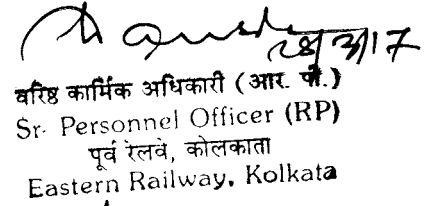 28/3/17
वरिष्ठ कार्मिक अधिकारी (आर. पी.)
Sr. Personnel Officer (RP)
पूर्व रेलवे, कोलकाता
Eastern Railway, Kolkata